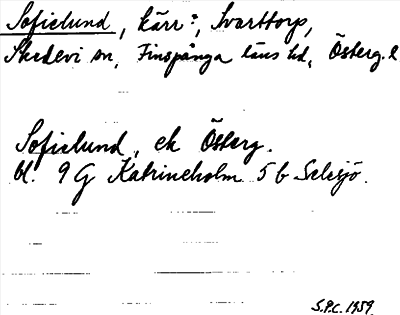 Sofielund, kärr?, Svarttorp,
Skedevi sn, Finspånga läns hd, Österg. l
Sofielund, ek Österg.
bl. 9 G Katrineholm 5 b Selesjö.
S.P.C. 1959.